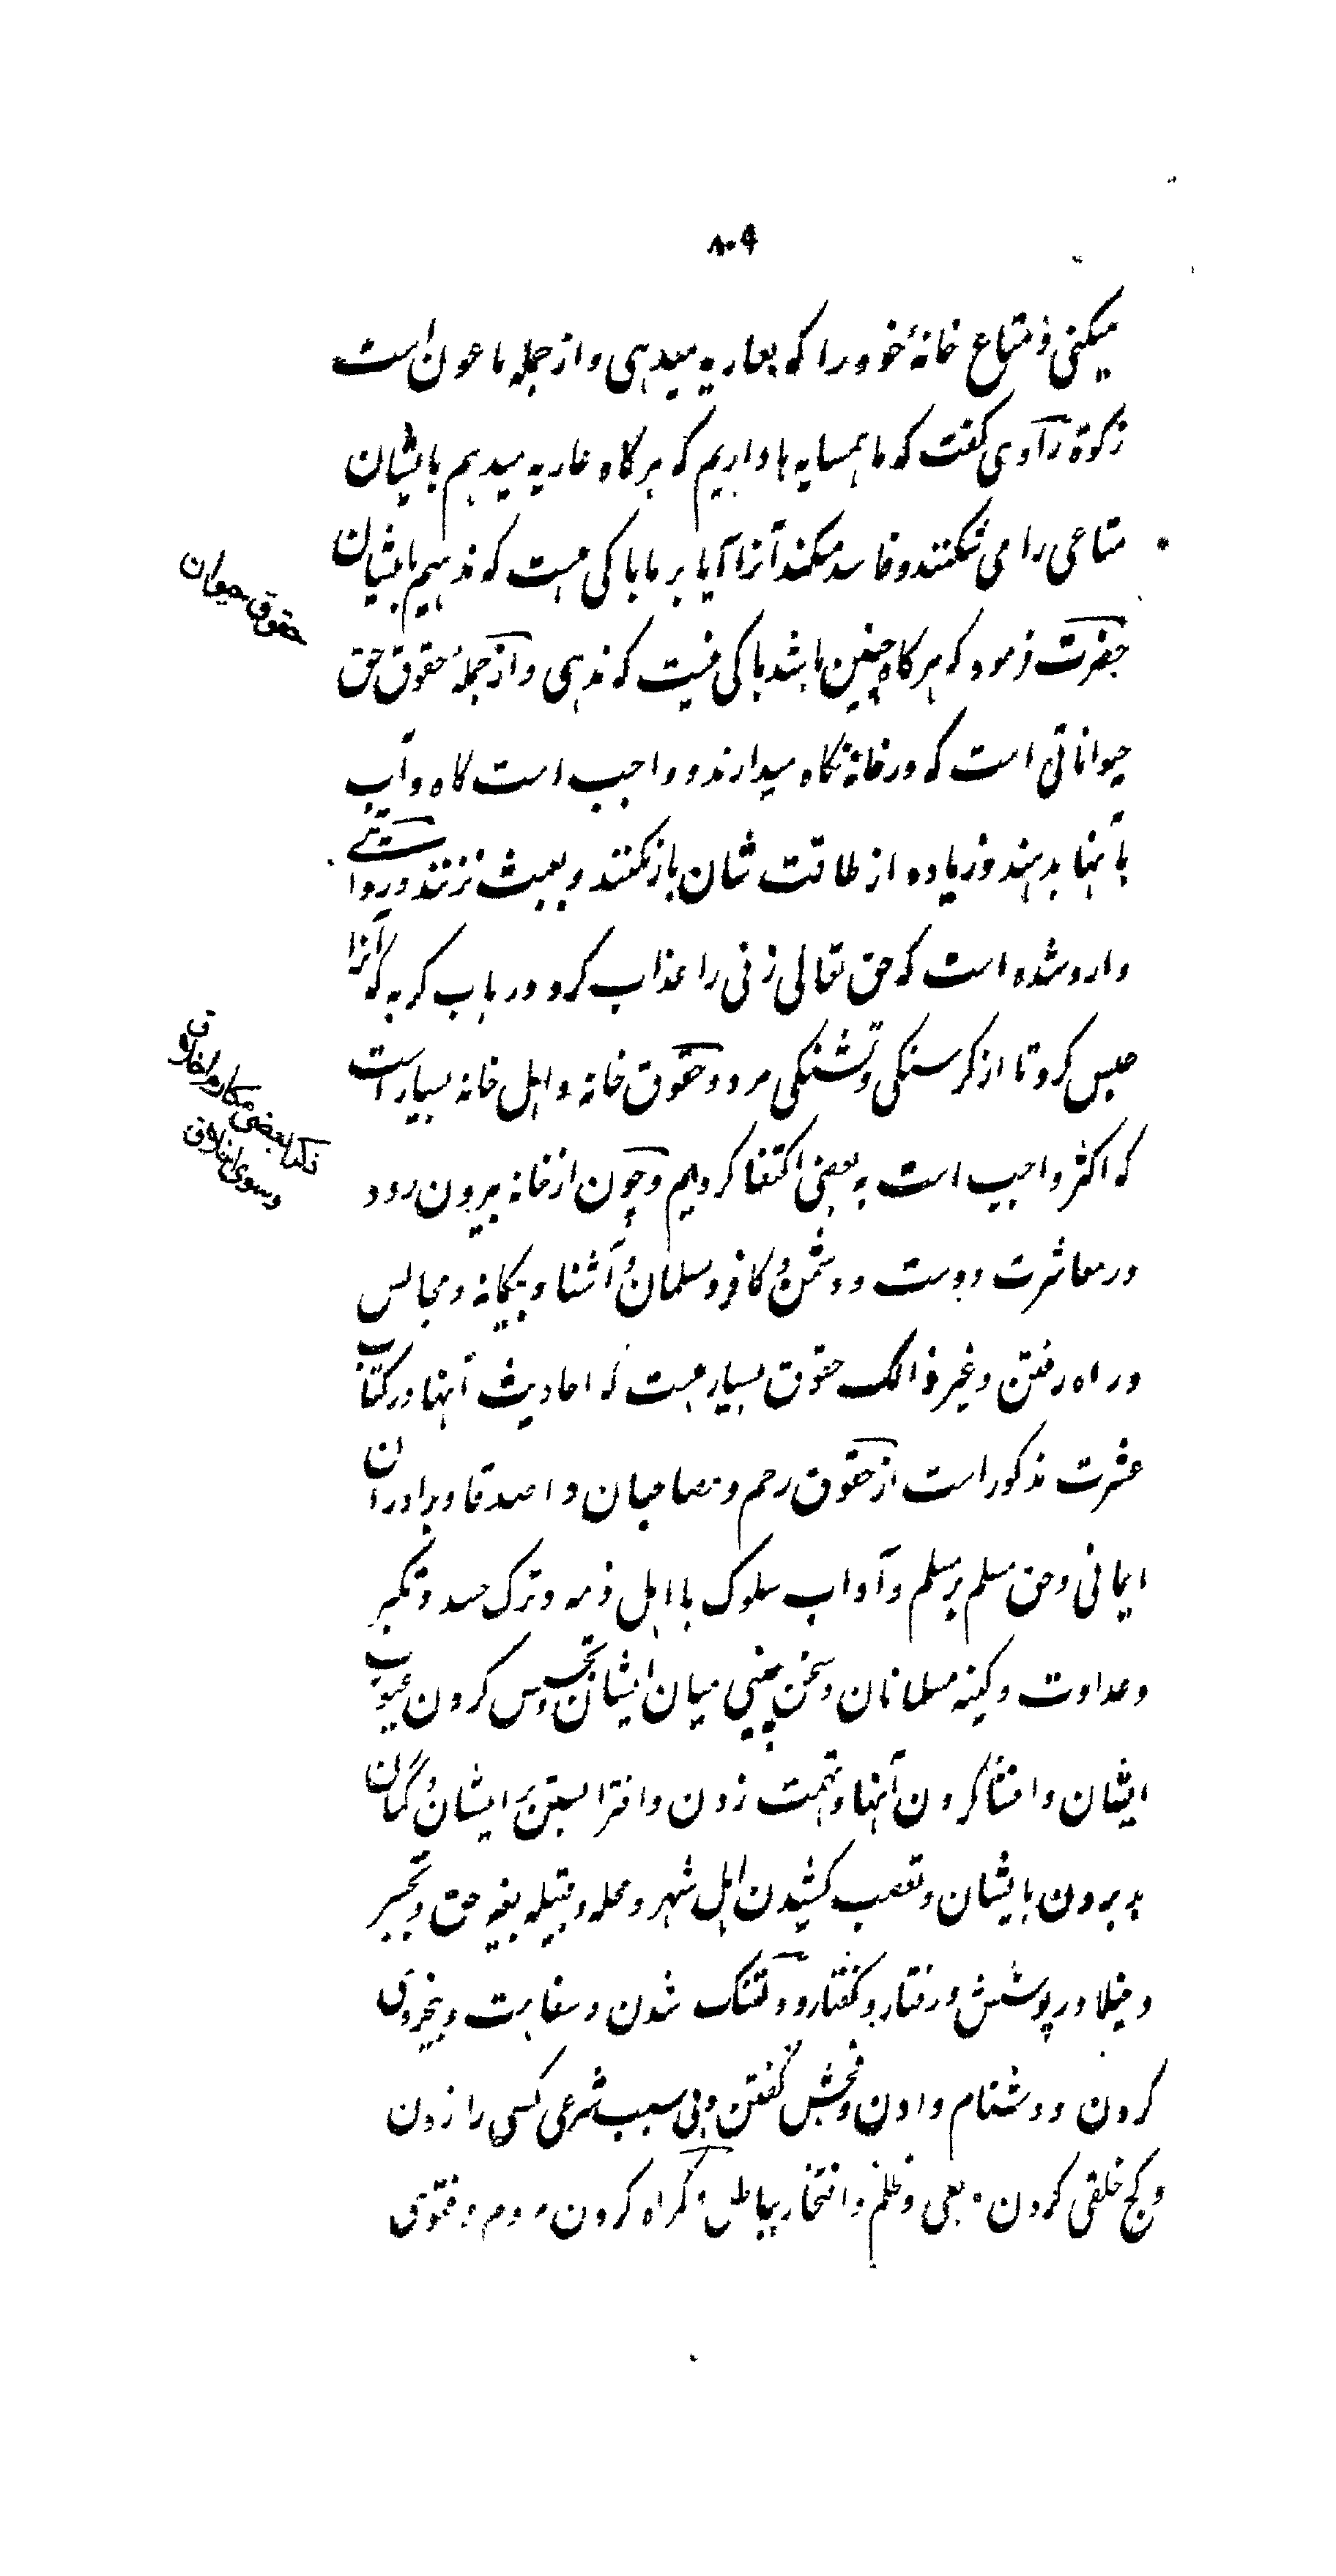 ۸۰۹
میکنی و متاع خانهٔ خود را که بعاریه میدهی و از جمله ماعون است
زکوة راوی گفت که ما همسایه ها داریم که هرگاه عاریه میدهیم بایشان
متاعی را می شکنند و فاسد میکنند آنرا آیا بر ما باکی هست که ندهیم بایشان
حضرت فرمود که هرگاه چنین باشد باکی نیست که ندهی و از جملهٔ حقوق حق
حقوق حیوان
حیواناتی است که در خانه نگاه میدارند و واجب است کاه و آب
بآنها بدهند و زیاده از طاقت شان بار نکنند و بعبث نزنند و روایتے
وارد شده است که حق تعالی زنی را عذاب کرد در باب گربه که آنرا
حبس کرد تا از گرسنگی و تشنگی مرد و حقوق خانه و اهل خانه بسیار است
ذکر بعضی مکارم اخلاق
وسوی اخلاق
که اکثر واجب است به بعضی اکتفا کردیم و چون از خانه بیرون رود
در معاشرت دوست و دشمن و کافر و مسلمان و آشنا و بیگانه و مجالس
و راه رفتن و غیر ذالک حقوق بسیار هست که احادیث آنها در کتاب
عشرت مذکور است از حقوق رحم و مصاحبان و اصدقا و برادران
ایمانی و حق مسلم بر مسلم و آداب سلوک با اهل ذمه و ترک حسد و تکبر
و عداوت و کینه مسلمانان و سخن چینی میان ایشان و تجسس کردن عیوب
ایشان و افشا کردن آنها و تهمت زدن و افترا بستن بر ایشان و گمان
بد بردن بایشان و تعصب کشیدن اهل شهر و محله و قبیله بغیر حق و تجبر
و خیلا در پوشش و رفتار و گفتار و شدن و سفاهت و بیخردی
کردن و دشنام دادن و فحش گفتن و بی سبب شرعی کسی را زدن
و کج خلقی کردن و بغی و ظلم و افتخار بباطل و گمراه کردن مردم و فتوی